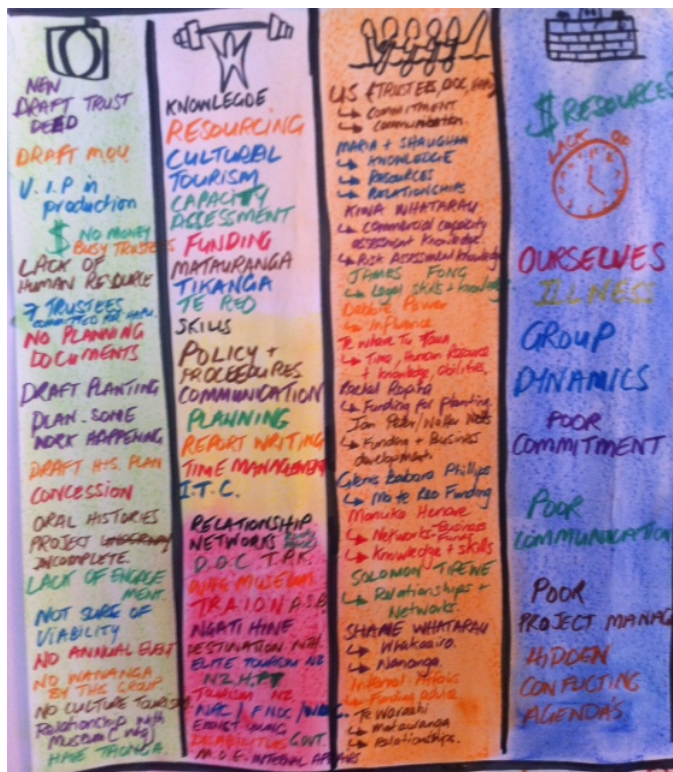 NEW
DRAFT TRUST
DEED
DRAFT M.O.U
V.I.P in
production
$ NO MONEY
BUSY TRUSTEES
LACK OF
HUMAN RESOURCE
7 TRUSTEES
COMMITTED FOR HAPU.
NO PLANNING
DOCUMENTS
DRAFT PLANTING
PLAN - SOME
WORK HAPPENING
DRAFT H+S. PLAN
CONCESSION
ORAL HISTORIES
PROJECT
INCOMPLETE.
LACK OF ENGAGE
MENT.
NOT SURE OF
VIABILITY
NO ANNUAL EVENT
NO WANANGA
BY THE GROUP
NO CULTURE TOURISM
Relationship with
Museum
HAVE TAONGA.
KNOWLEGDE
RESOURCING
CULTURAL
TOURISM
CAPACITY
ASSESSMENT
FUNDING
MATAURANGA
TIKANGA
TE REO
SKILLS
POLICY +
PROCEEDURES
COMMUNICATION
PLANNING
REPORT WRITING
TIME MANAGEMENT
I.T.C.
RELATIONSHIP
NETWORKS
D.O.C T.P.K.
MUSEUM.
T.R.A.I.O.N A.S.B
NGATI HINE
DESTINATION NTH.
ELITE TOURISM NZ
N.Z.H.P.T
TOURISM NZ
NRC / FNDC /
ERNST YOUNG
GOVT.
M.O.E. INTERNAL AFFAIRS
US (TRUSTEES, DOC,
↳ COMMITMENT
↳ Communication.
MARIA + SHAUGHAN
↳ KNOWLEDGE
↳ RESOURCES
↳ RELATIONSHIPS
KINA WHATARAU
↳ Commercial capacity
assessment knowledge.
↳ Risk Assessment knowledge
JAMES FONG
↳ Legal skills + knowledge
Debbie Power
↳ Influence
↳ Time, Human Resource
+ knowledge, abilities.
Rachel Ropiha
↳ Funding for planting.
↳ Funding + Business
development.
Glenis Barbara Phillips
↳ Ma te Reo Funding
Manuka Henare
↳ Networks - Business
↳ Knowledge + skills
SOLOMON TIPENE
↳ Relationships +
Networks.
SHANE WHATARAU
↳ Whakairo.
↳ Wananga.
Internal Affairs
↳ Funding advice
Te Warahi
↳ matauranga
↳ relationships.
$ RESOURCES
LACK OF
OURSELVES
ILLNESS
GROUP
DYNAMICS
POOR
COMMITMENT
POOR
COMMUNICATION
POOR
PROJECT MANAG
HIDDEN
CONFLICTING
AGENDAS